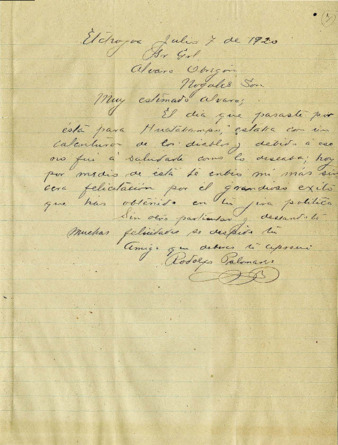 (5)
Etchojoa Julio 7 de 1920
Sr Gral
Alvaro Obregon
Nogales Son
Muy estimado Alvaro;
El dia que pasaste por
esta para Huatabampo, estaba con un
calenturon de los diablos, debido a eso
no fui a saludarte como lo deseaba; hoy
por medio de esta te envio mi mas sin
cera felicitacion por el grandioso exito
que has obtenido en tu jira politica
Sin otro particular y deseandote
muchas felicidades se despide tu
Amigo que deveras te aprecia
Rodolfo Palomares